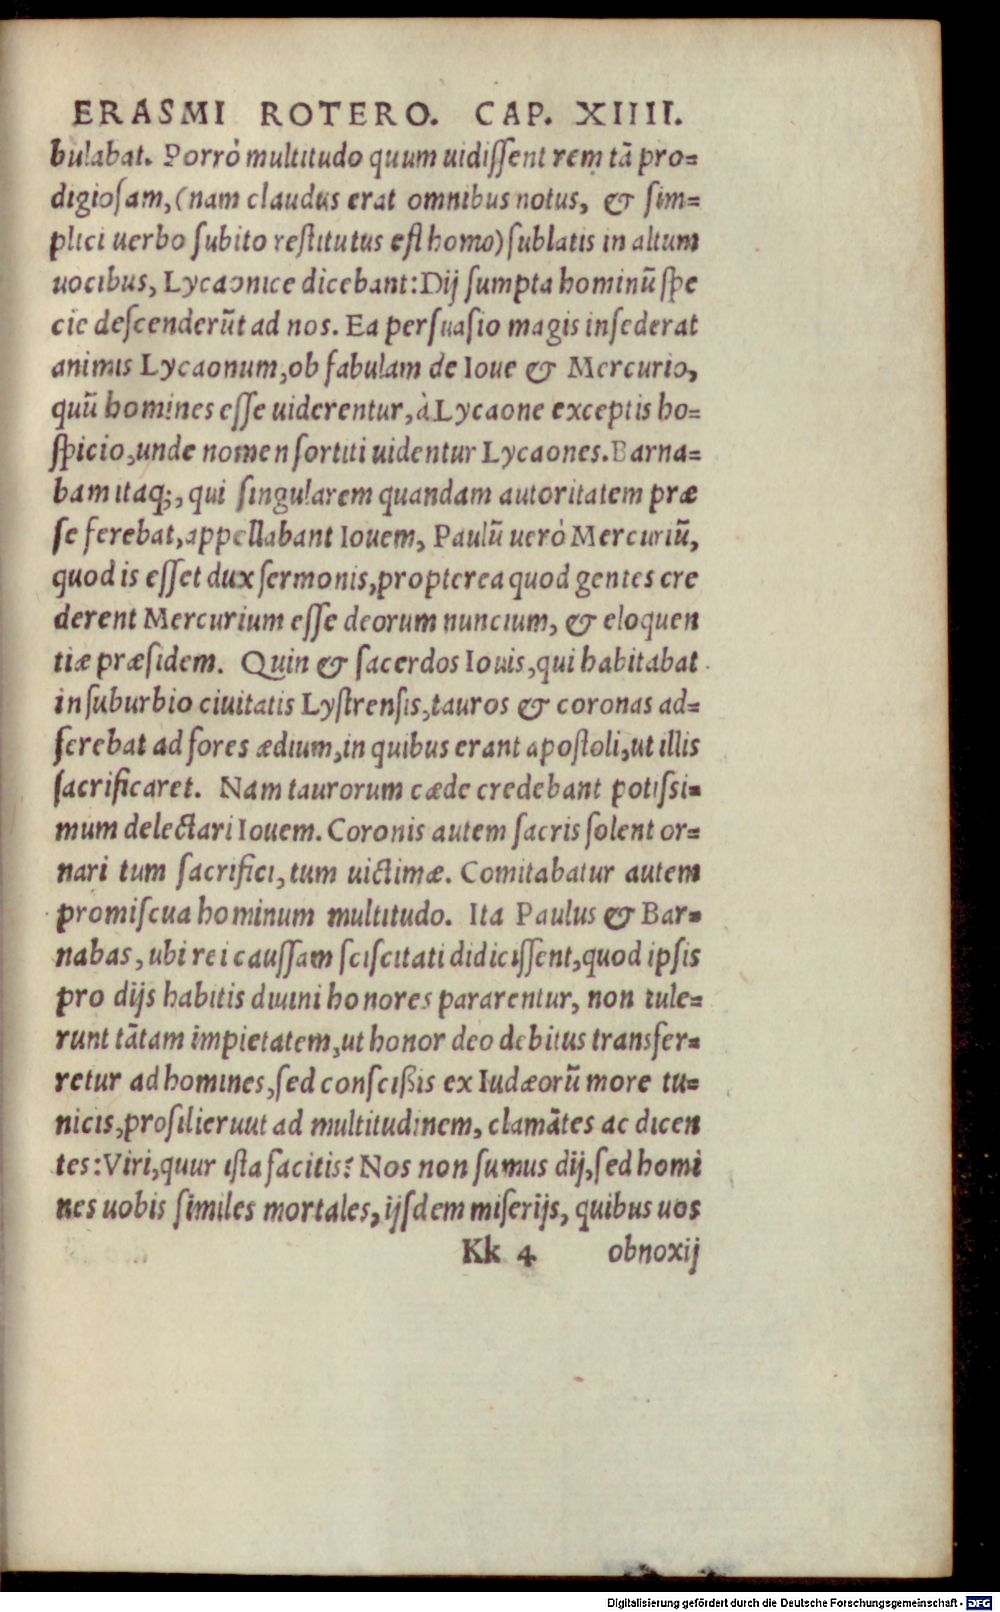 ERASMI ROTERO. CAP. XIIII.
bulabat. Porrò multitudo quum uidiſſent rem tā pro=
digioſam, (nam claudus erat omnibus notus, & ſim=
plici uerbo ſubito reſtitutus eſt homo) ſublatis in altum
uocibus, Lycaonice dicebant: Dij ſumpta hominū ſpe
cie deſcenderūt ad nos. Ea perſuaſio magis inſederat
animis Lycaonum, ob fabulam de Ioue & Mercurio,
quū homines eſſe uiderentur, à Lycaone exceptis ho=
ſpicio, unde nomen ſortiti uidentur Lycaones. Barna=
bam itaq;, qui ſingularem quandam autoritatem præ
ſe ferebat, appellabant Iouem, Paulū uerò Mercuriū,
quod is eſſet dux ſermonis, propterea quod gentes cre
derent Mercurium eſſe deorum nuncium, & eloquen
tiæ præſidem. Quin & ſacerdos Iouis, qui habitabat
in ſuburbio ciuitatis Lyſtrenſis, tauros & coronas ad=
ferebat ad fores ædium, in quibus erant apoſtoli, ut illis
ſacrificaret. Nam taurorum cæde credebant potiſſi=
mum delectari Iouem. Coronis autem ſacris ſolent or=
nari tum ſacrifici, tum uictimæ. Comitabatur autem
promiſcua hominum multitudo. Ita Paulus & Bar=
nabas, ubi rei cauſſam ſciſcitati didiciſſent, quod ipſis
pro dijs habitis diuini honores pararentur, non tule=
runt tātam impietatem, ut honor deo debitus transfer=
retur ad homines, ſed conſcißis ex Iudæorū more tu=
nicis, proſilieruut ad multitudinem, clamātes ac dicen
tes: Viri, quur iſta facitis? Nos non ſumus dij, ſed homi
nes uobis ſimiles mortales, ijſdem miſerijs, quibus uos
Kk 4 obnoxij
Digitalisierung gefördert durch die Deutsche Forschungsgemeinschaft - DFG